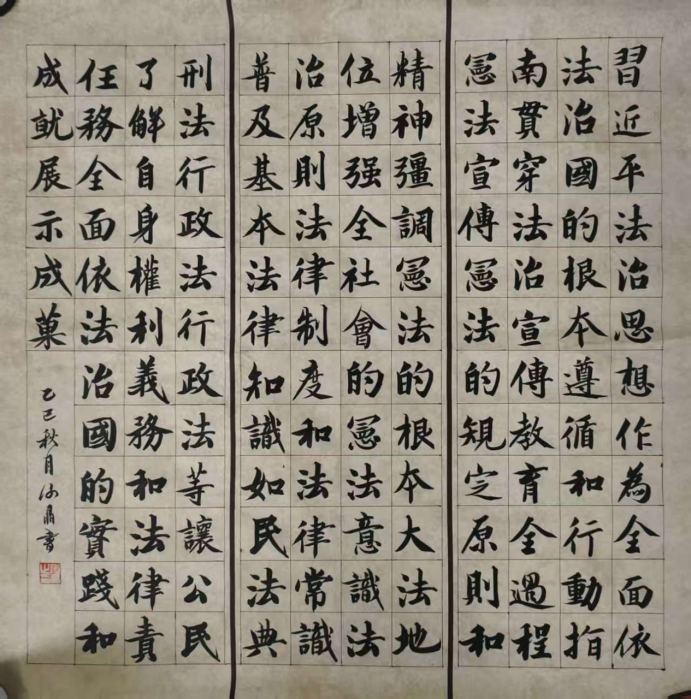 習近平法治思想作為全面依
法治國的根本遵循和行動指
南貫穿法治宣傳教育全過程
憲法宣傳憲法的規定原則和
精神彊調憲法的根本大法地
位增强全社會的憲法意識法
治原則法律制度和法律常識
普及基本法律知識如民法典
刑法行政法行政法等讓公民
了解自身權利義務和法律責
任務全面依法治國的實踐和
成就展示成菓
乙巳秋月書